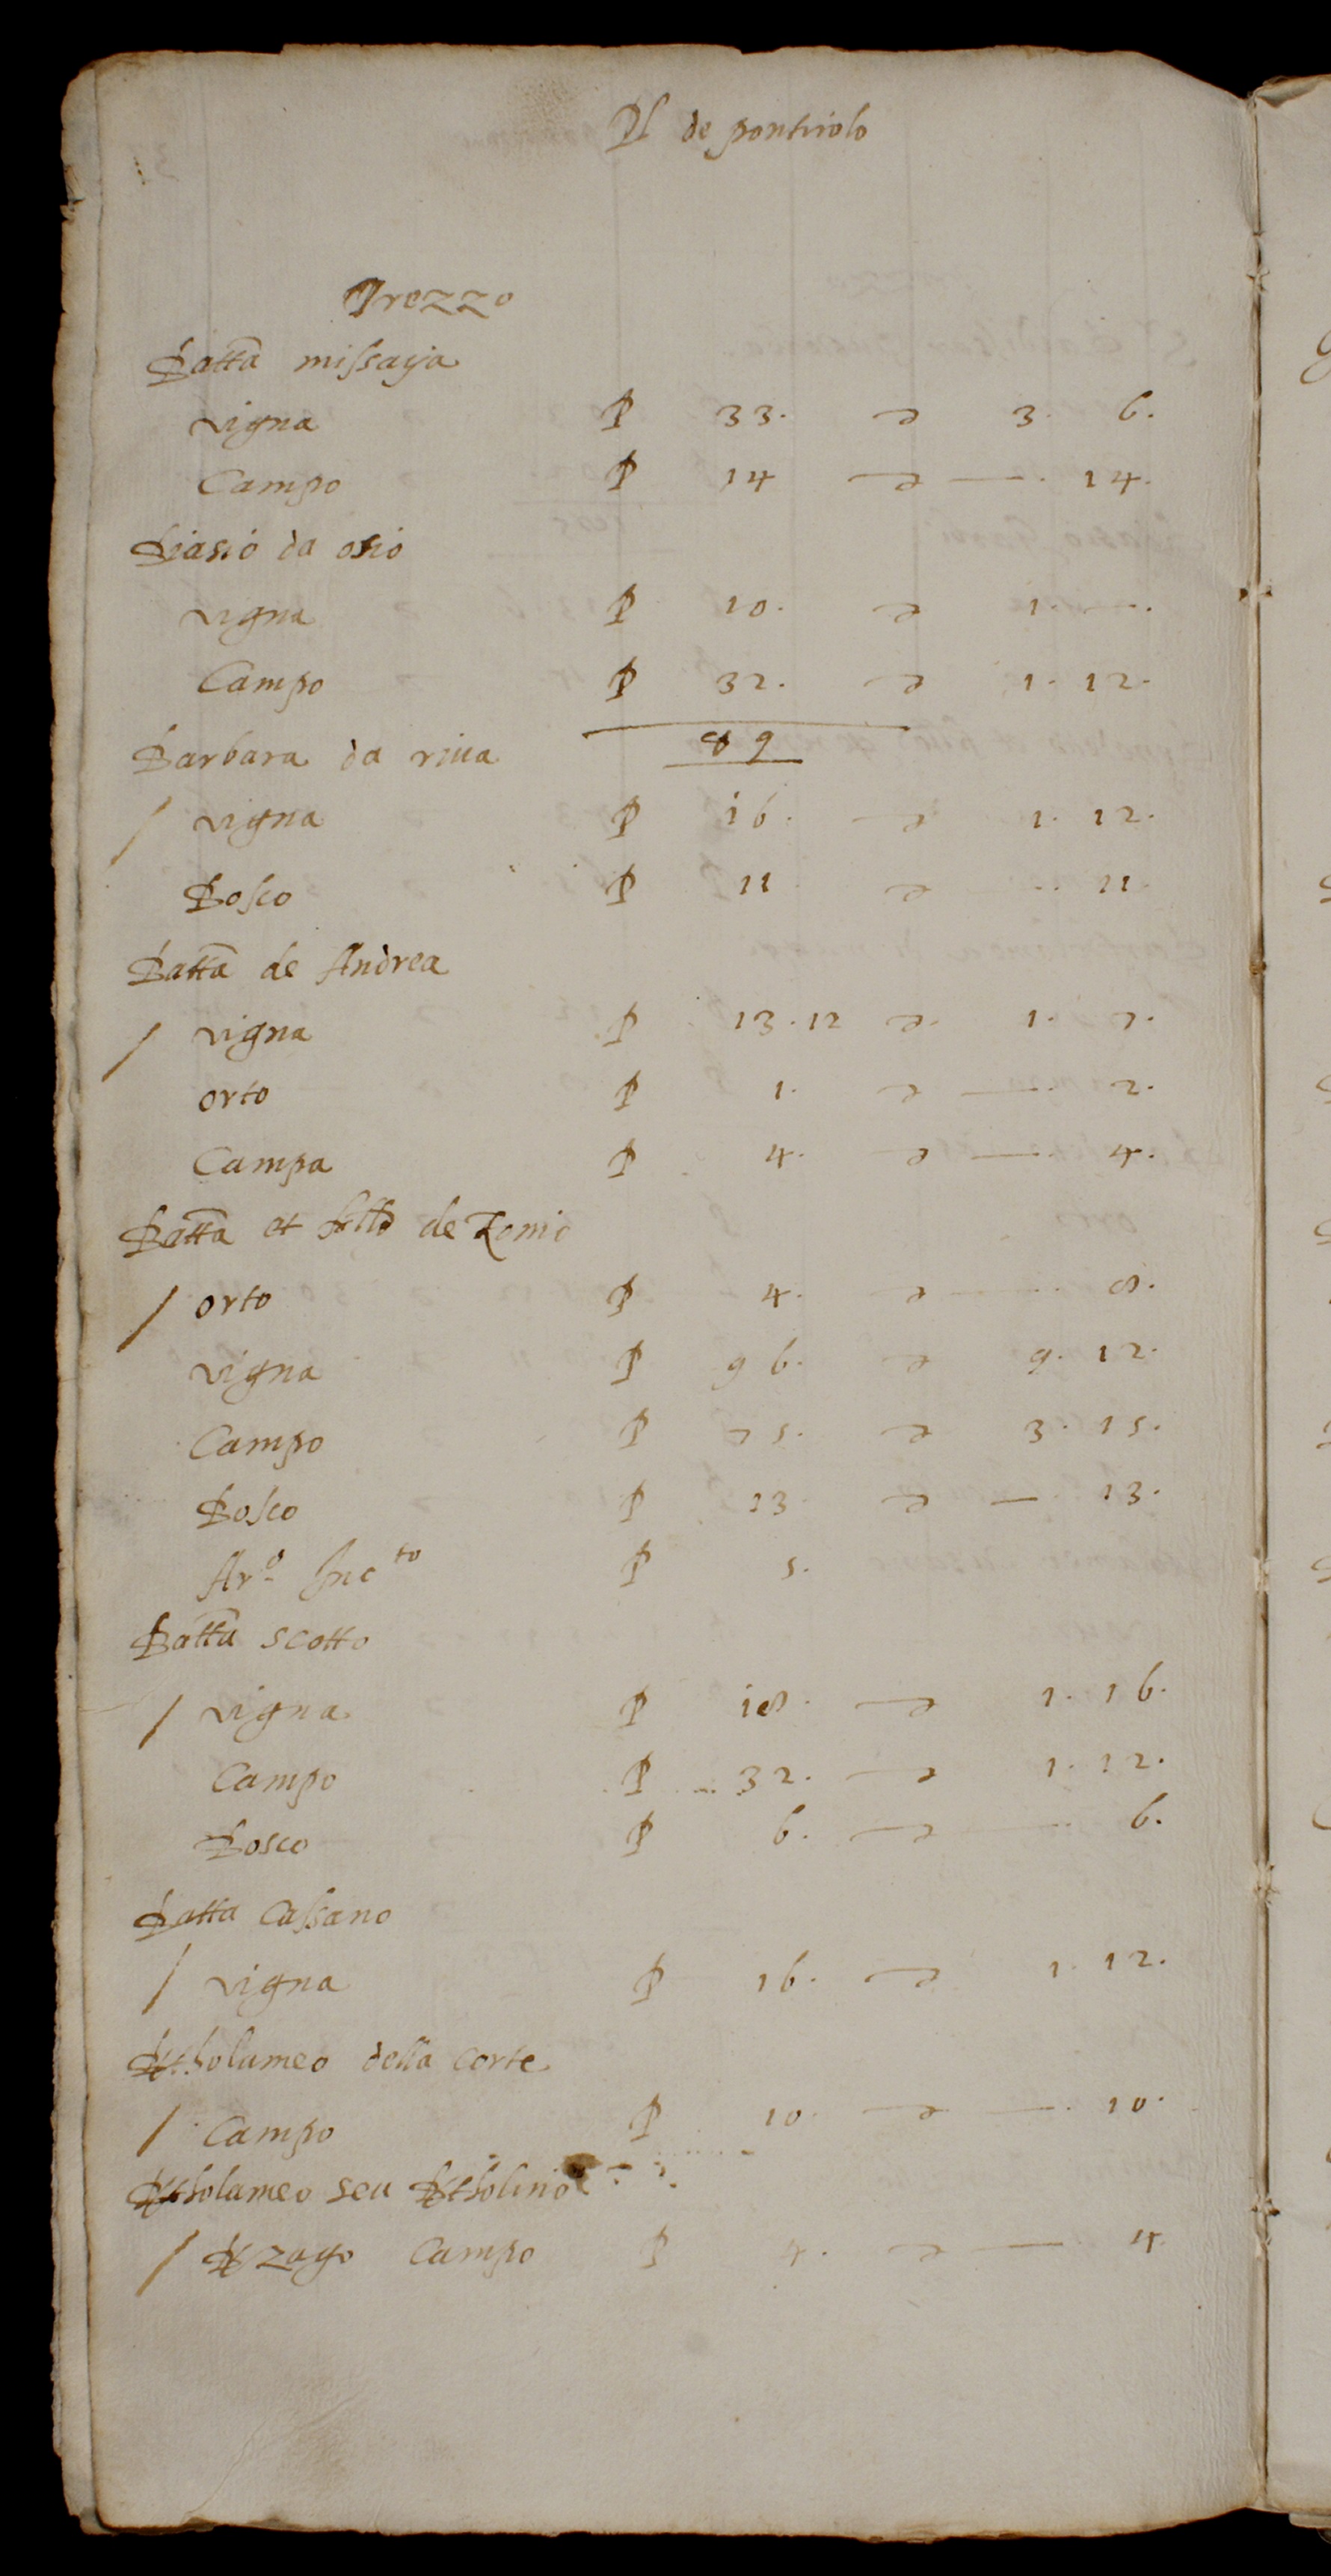 Pl de pontirolo
Trezzo
Batta missaya
vigna P 33. e 3. 6.
Campo P 14 e — 14.
Biasio da osio
vigna P 10. e 1. —.
Campo P 32. e 1. 12.
89
Barbara da riva
/ vigna P 16. e 1. 12.
Bosco P 11 e 11.
Batta de Andrea
/ vigna P 13.12 e 1. 7.
orto P 1. e — 2.
Campa P 4. e — 4.
Batta et de Zonio
/ orto P 4. e — 8.
vigna P 96. e 9. 12.
Campo P 75. e 3. 15.
Bosco P 13 e — 13.
Aro Incto P 5.
Batta scotto
/ vigna P 18. e 1. 16.
Campo P 32. e 1. 12.
Bosco P 6. e — 6.
Batta Cassano
/ vigna P 16. e 1. 12.
Btholameo della Corte
/ Campo P 10. e — 10.
Btholameo seu Btholino
/ Bzago Campo P 4. e — 4